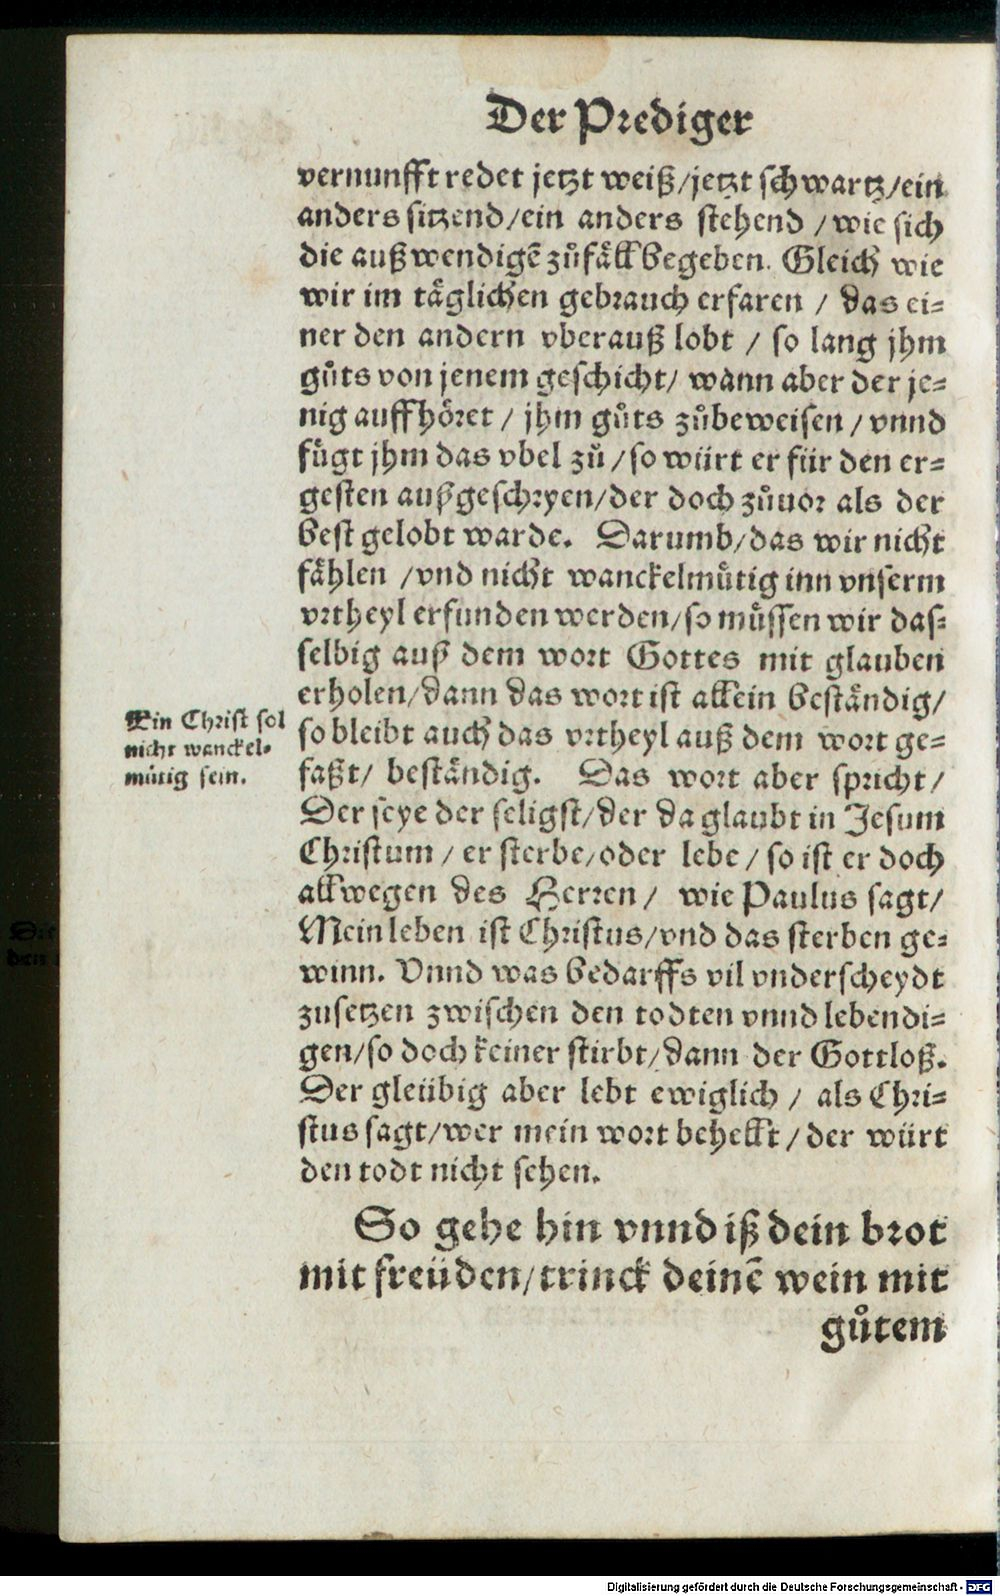 Der Prediger
vernunfft redet jetzt weiß/jetzt schwartz/ein
anders sitzend/ein anders stehend / wie sich
die außwendigẽ zůfäll begeben. Gleich wie
wir im täglichen gebrauch erfaren / das ei=
ner den andern vberauß lobt / so lang jhm
gůts von jenem geschicht/ wann aber der je=
nig auffhöret / jhm gůts zůbeweisen / vnnd
fügt jhm das vbel zů / so würt er für den er=
gesten außgeschryen/der doch zůuor als der
best gelobt warde. Darumb/das wir nicht
fählen /vnd nicht wanckelmütig inn vnserm
vrtheyl erfunden werden/so müssen wir das=
selbig auß dem wort Gottes mit glauben
erholen/dann das wort ist allein beständig/
so bleibt auch das vrtheyl auß dem wort ge=
faßt/ beständig. Das wort aber spricht/
Der seye der seligst/der da glaubt in Jesum
Christum / er sterbe/oder lebe / so ist er doch
allwegen des Herren / wie Paulus sagt/
Mein leben ist Christus/vnd das sterben ge=
winn. Vnnd was bedarffs vil vnderscheydt
zusetzen zwischen den todten vnnd lebendi=
gen/so doch keiner stirbt/dann der Gottloß.
Der gleübig aber lebt ewiglich / als Chri=
stus sagt/wer mein wort behellt / der würt
den todt nicht sehen.
So gehe hin vnnd iß dein brot
mit freüden/trinck deinẽ wein mit
gůtem
Ein Christ sol
nicht wanckel=
mütig sein.
Digitalisierung gefördert durch die Deutsche Forschungsgemeinschaft - DFG